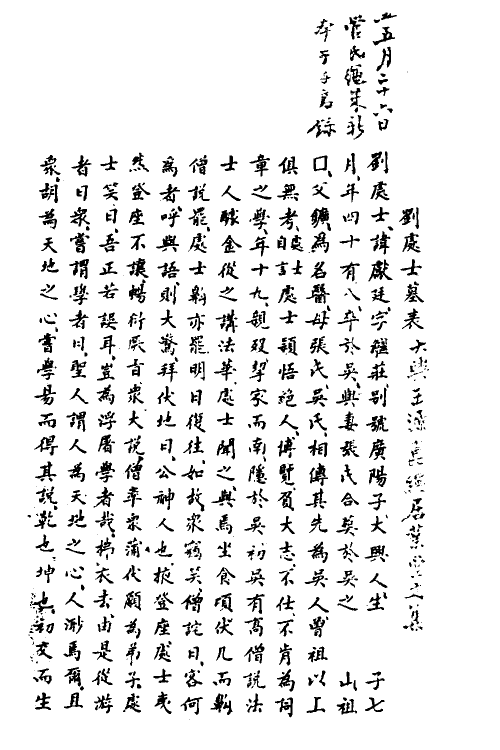 五月二十六日
劉處士墓表 大興王源崑繩居業堂文集
劉處士諱獻廷字繼莊別號廣陽子大興人生 子七
月年四十有八卒於吳與妻張氏合葬於吳之 山祖
口父鑛為名醫母張氏吳氏相傳其先為吳人曾祖以上
俱無考自言處士穎悟絶人博覽負大志不仕不肯為詞
章之學年十九親歿挈家而南隱於吳初吳有高僧說法
士人醵金從之講法華處士聞之與焉坐食頃伏几而鼾
僧説罷處士鼾亦罷明日復往如故衆竊笑僧詫曰客何
為者呼與語則大驚拜伏地曰公神人也掖登座處士夷
然登座不讓暢衍厥旨衆大說僧率衆蒲伏願為弟子處
士笑曰吾正若誤耳豈為浮屠學者哉拂衣去由是從游
者日衆嘗謂學者曰聖人謂人為天地之心人渺焉爾且
衆胡為天地之心嘗學易而得其説乾也坤也初交而生